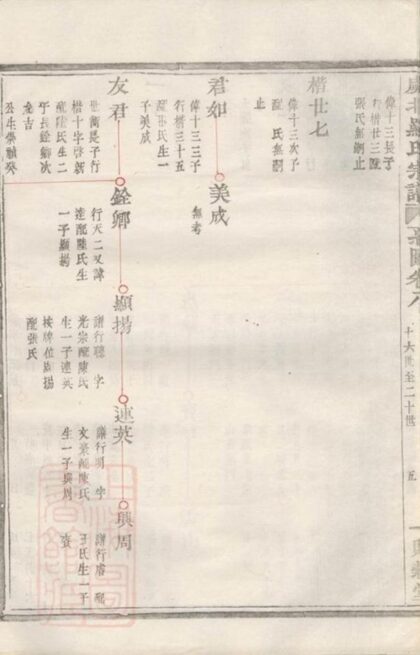 氏宗譜
十六世至二十世
五
偉十三長子
行楷廿三
張氏無嗣止
楷廿七
偉十三次子
配 氏無嗣
止
君如
偉十三三子
行楷三十五
氏生一
子美成
美成
無考
友君
長子行
楷十字啓新
配陸氏生二
子長銓卿次
公生崇禎癸
銓卿
行天二又諱
達配陸氏生
一子顯揚
顯揚
譜行聰 字
光宗配陳氏
生一子連英
按牌位顯揚
配張氏
連英
譜行明 字
文 配陳氏
生一子興周
興周
譜行 配
王氏生一子